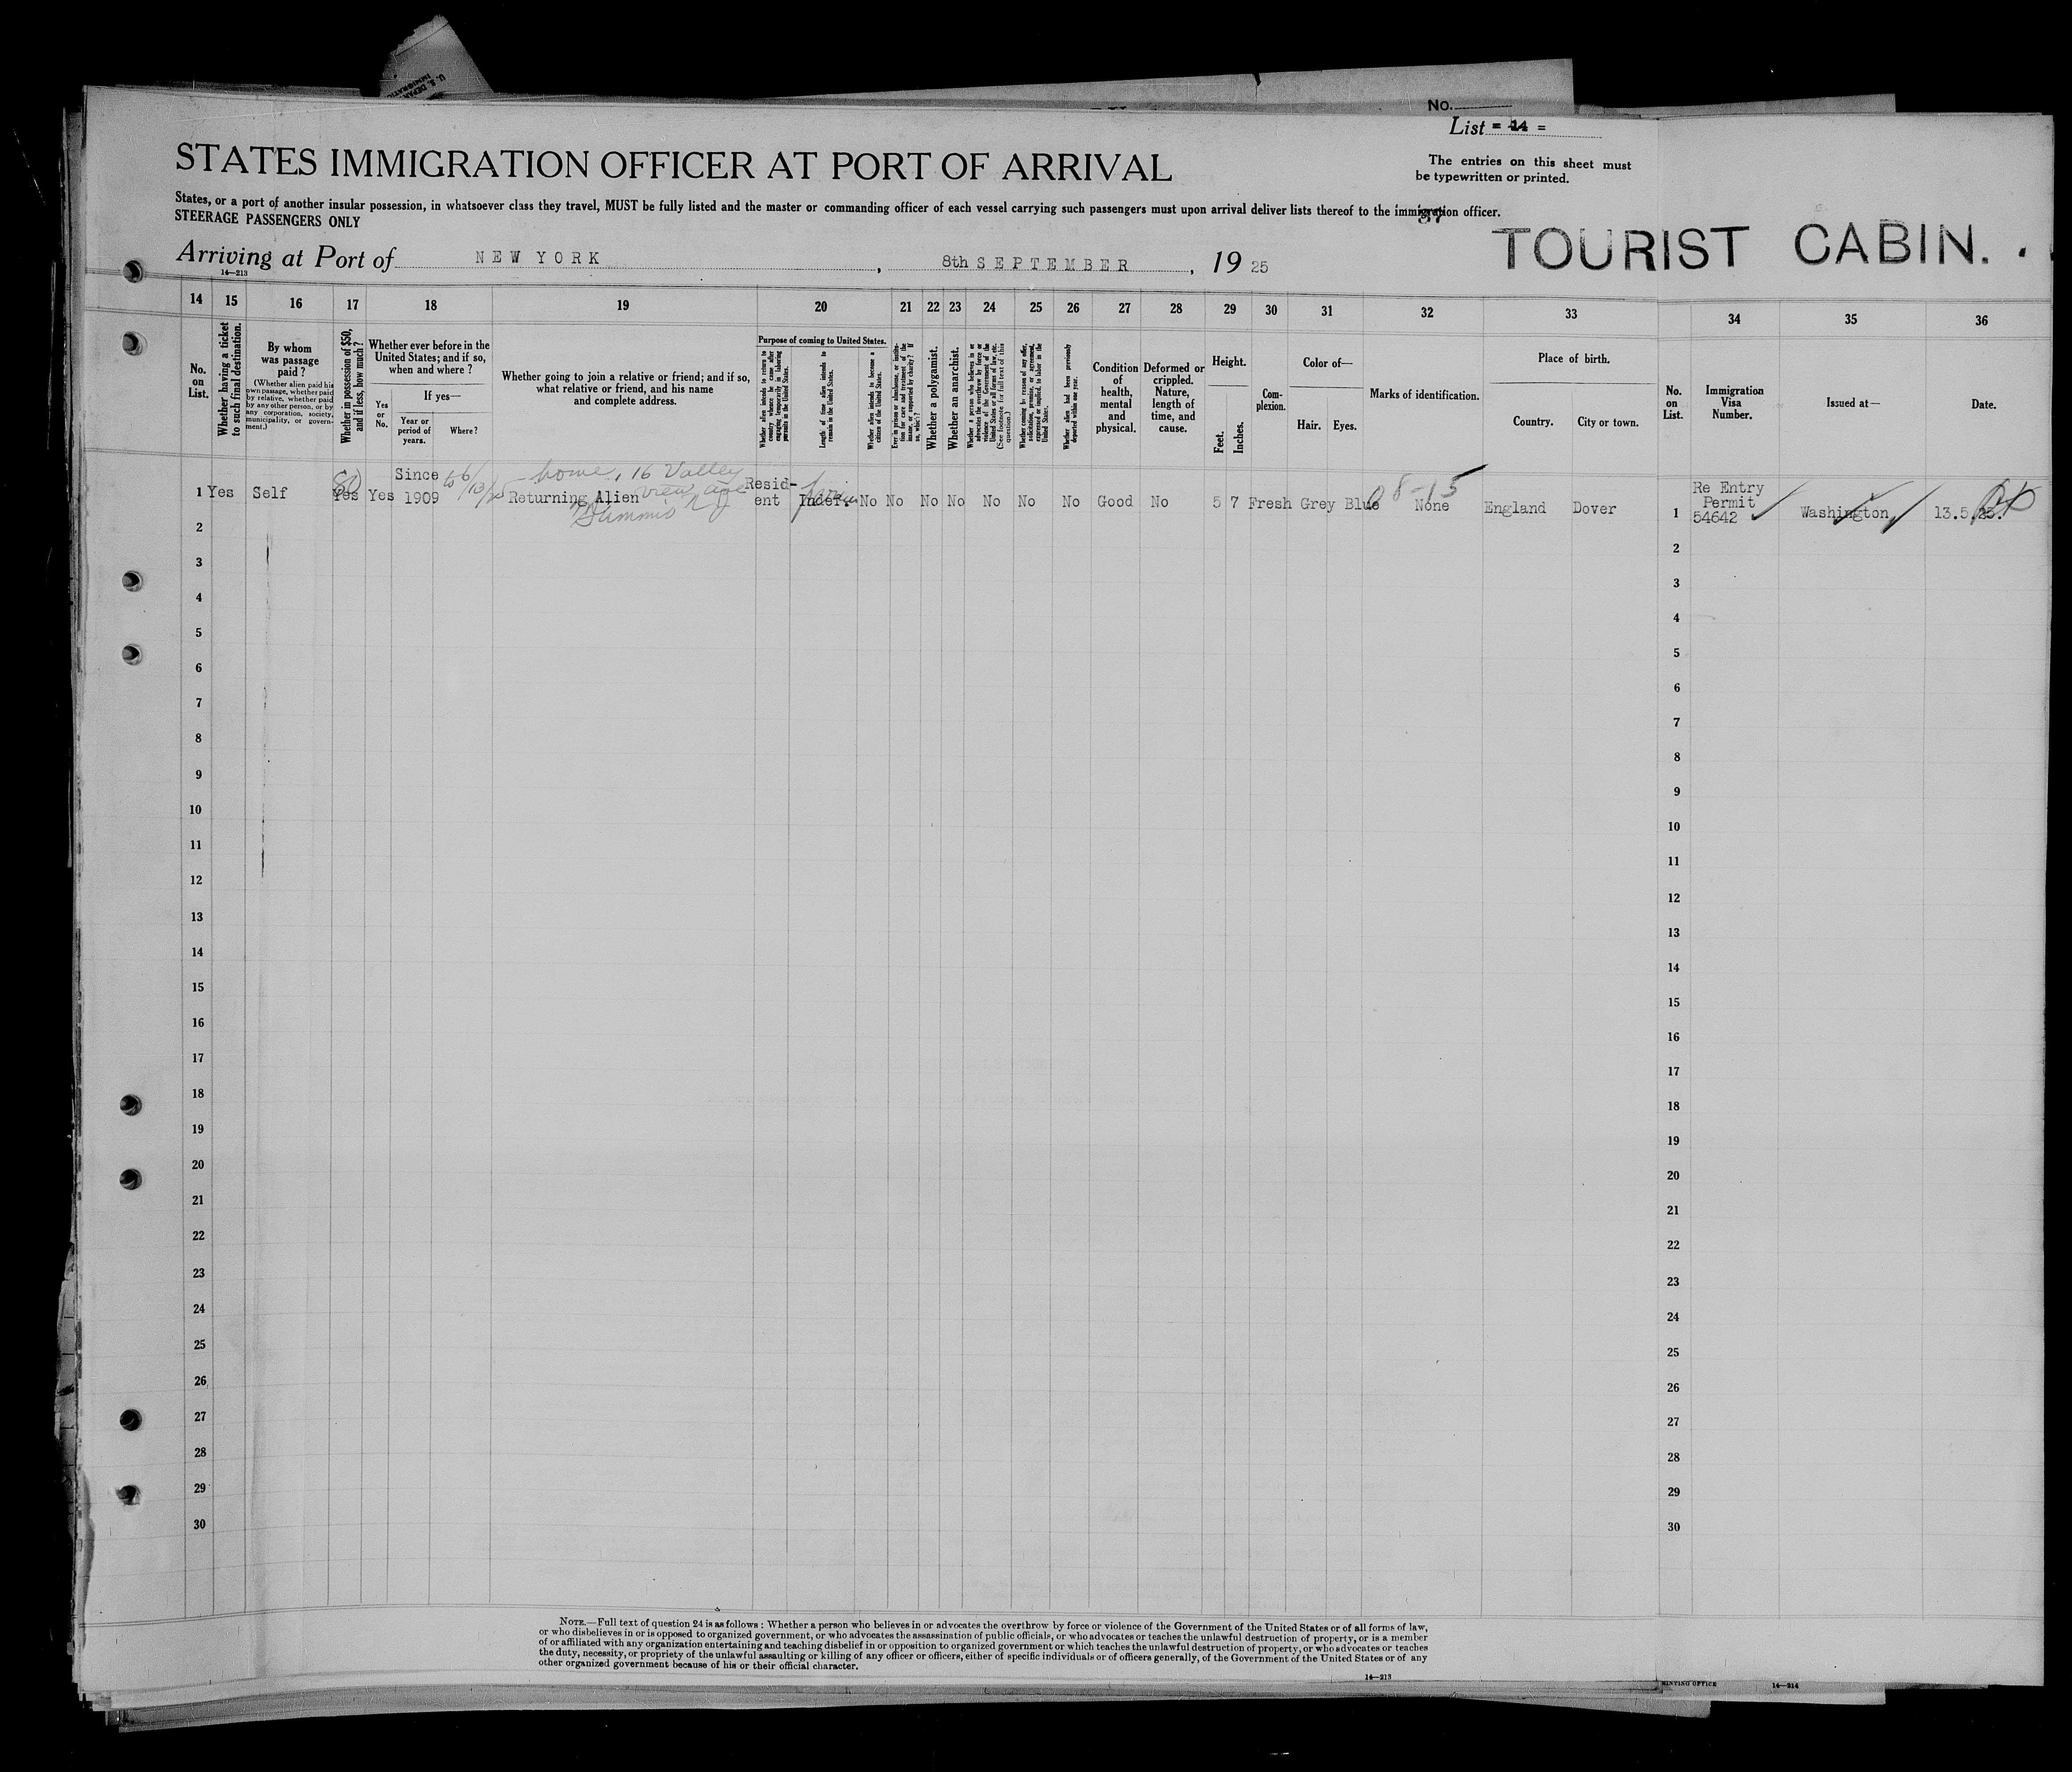 No.
List = 14 =
The entries on this sheet must
be typewritten or printed.
STATES IMMIGRATION OFFICER AT PORT OF ARRIVAL
States, or a port of another insular possession, in whatsoever class they travel, MUST be fully listed and the master or commanding officer of each vessel carrying such passengers must upon arrival deliver lists thereof to the immigration officer.
STEERAGE PASSENGERS ONLY
37
TOURIST CABIN.
Arriving at Port of NEW YORK, 8th SEPTEMBER, 19 25
14—213
14 15 16 17 18 19 20 21 22 23 24 25 26 27 28 29 30 31 32 33 34 35 36
No. on List.
Whether having a ticket to such final destination.
By whom was passage paid?
(Whether alien paid his own passage, whether paid by relative, whether paid by any other person, or by any corporation, society, municipality, or government.)
Whether in possession of $50, and if less, how much?
Whether ever before in the United States; and if so, when and where?
Yes or No.
If yes—
Year or period of years.
Where?
Whether going to join a relative or friend; and if so, what relative or friend, and his name and complete address.
Purpose of coming to United States.
Whether alien intends to return to country whence he came after engaging temporarily in laboring pursuits in the United States.
Length of time alien intends to remain in the United States.
Whether alien intends to become a citizen of the United States.
Ever in prison or almshouse, or institution for care and treatment of the insane, or supported by charity? If so, which?
Whether a polygamist.
Whether an anarchist.
Whether a person who believes in or advocates the overthrow by force or violence of the Government of the United States or all forms of law, etc. (See footnote for full text of this question.)
Whether coming by reason of any offer, solicitation, promise, or agreement, expressed or implied, to labor in the United States.
Whether alien had been previously deported within one year.
Condition of health, mental and physical.
Deformed or crippled. Nature, length of time, and cause.
Height.
Feet.
Inches.
Complexion.
Color of—
Hair.
Eyes.
Marks of identification.
Place of birth.
Country.
City or town.
No. on List.
Immigration Visa Number.
Issued at—
Date.
home, 16 Valley
view ave
Summit NJ
1 Yes Self Yes Yes Since 1909 to 6/13/25 Returning Alien Resident Indef. No No No No No No No Good No 5 7 Fresh Grey Blue None England Dover
08-15
1 Re Entry Permit 54642 Washington 13.5.25.
2 2
3 3
4 4
5 5
6 6
7 7
8 8
9 9
10 10
11 11
12 12
13 13
14 14
15 15
16 16
17 17
18 18
19 19
20 20
21 21
22 22
23 23
24 24
25 25
26 26
27 27
28 28
29 29
30 30
NOTE.—Full text of question 24 is as follows: Whether a person who believes in or advocates the overthrow by force or violence of the Government of the United States or of all forms of law,
or who disbelieves in or is opposed to organized government, or who advocates the assassination of public officials, or who advocates or teaches the unlawful destruction of property, or is a member
of or affiliated with any organization entertaining and teaching disbelief in or opposition to organized government or which teaches the unlawful destruction of property, or who advocates or teaches
the duty, necessity, or propriety of the unlawful assaulting or killing of any officer or officers, either of specific individuals or of officers generally, of the Government of the United States or of any
other organized government because of his or their official character.
14—213
PRINTING OFFICE 14—214